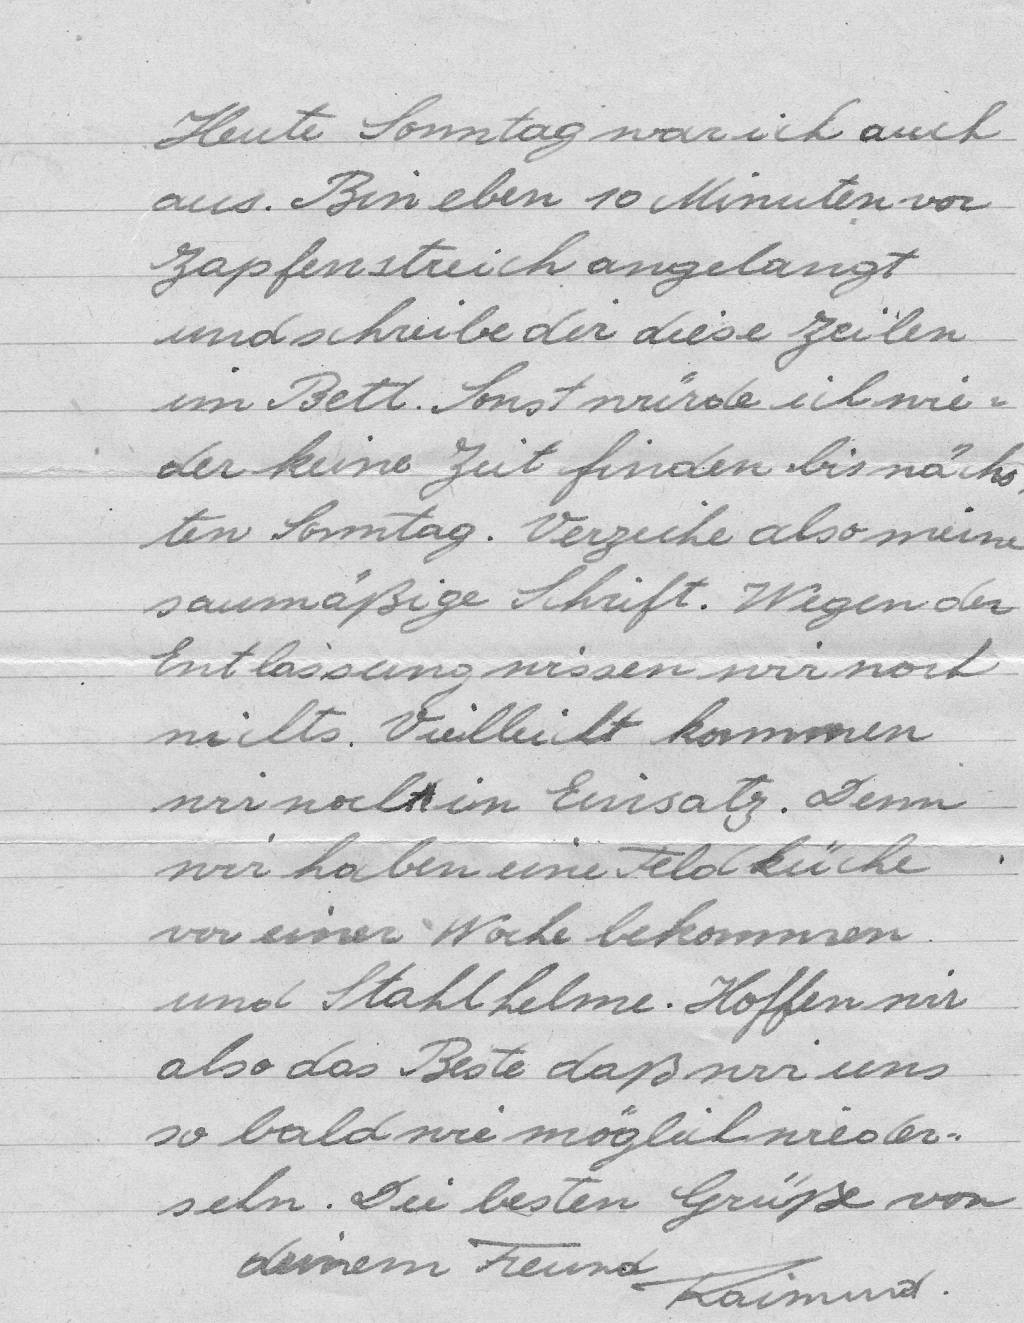 Heute Sonntag war ich auch
aus. Bin eben 10 Minuten vor
Zapfenstreich angelangt
und schreibe dir diese Zeilen
im Bett. Sonst würde ich wie-
der keine Zeit finden bis nächs-
ten Sonntag. Verzeihe also meine
saumäßige Schrift. Wegen der
Entlassung wissen wir noch
nichts. Vielleicht kommen
wir noch im Einsatz. Denn
wir haben eine Feldküche
vor einer Woche bekommen
und Stahlhelme. Hoffen wir
also das Beste daß wir uns
so bald wie möglich wieder-
sehn. Die besten Grüße von
deinem Freund
Raimund.